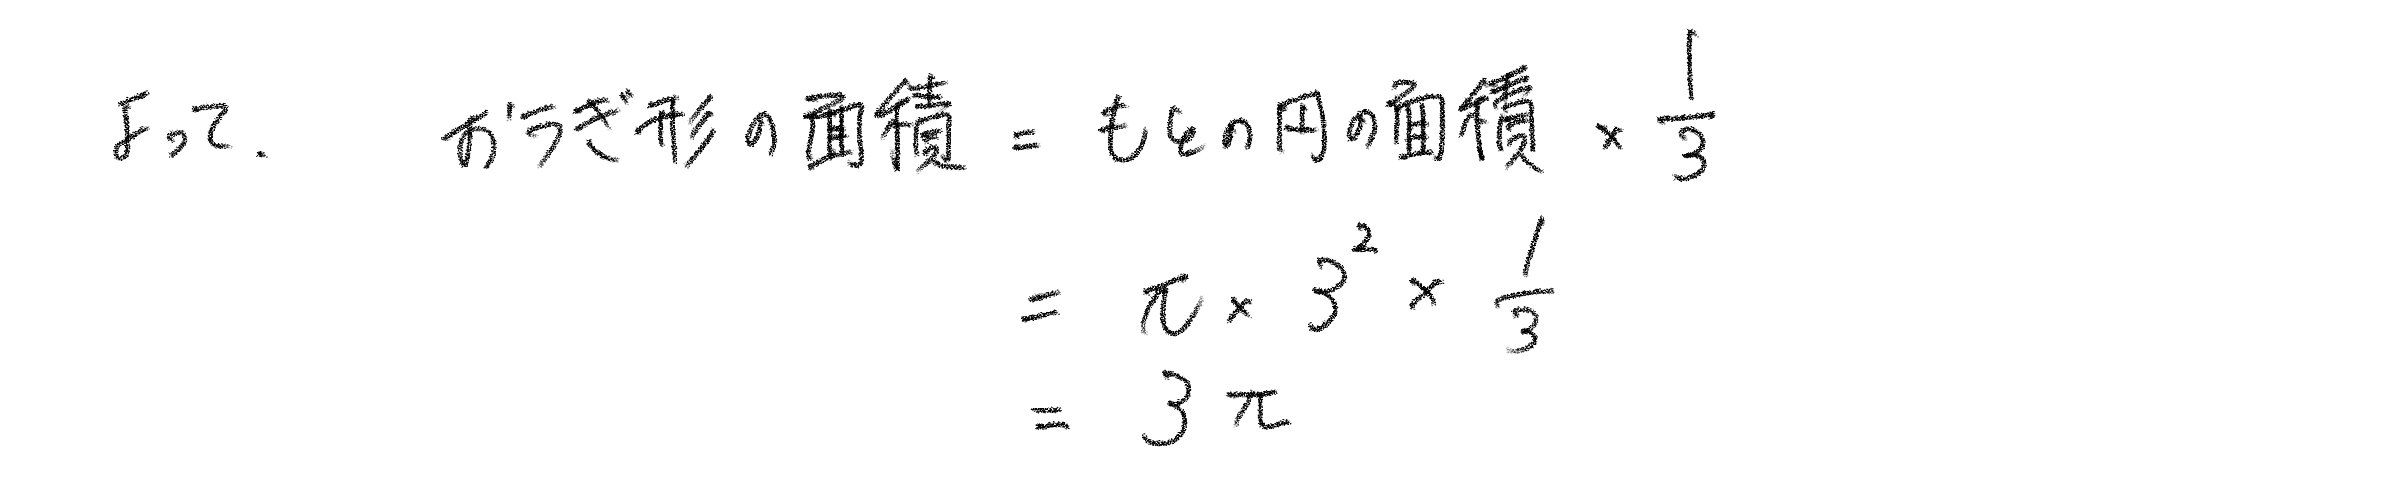 よって. おうぎ形の面積 = もとの円の面積 × 1/3
= π × 3² × 1/3
= 3π